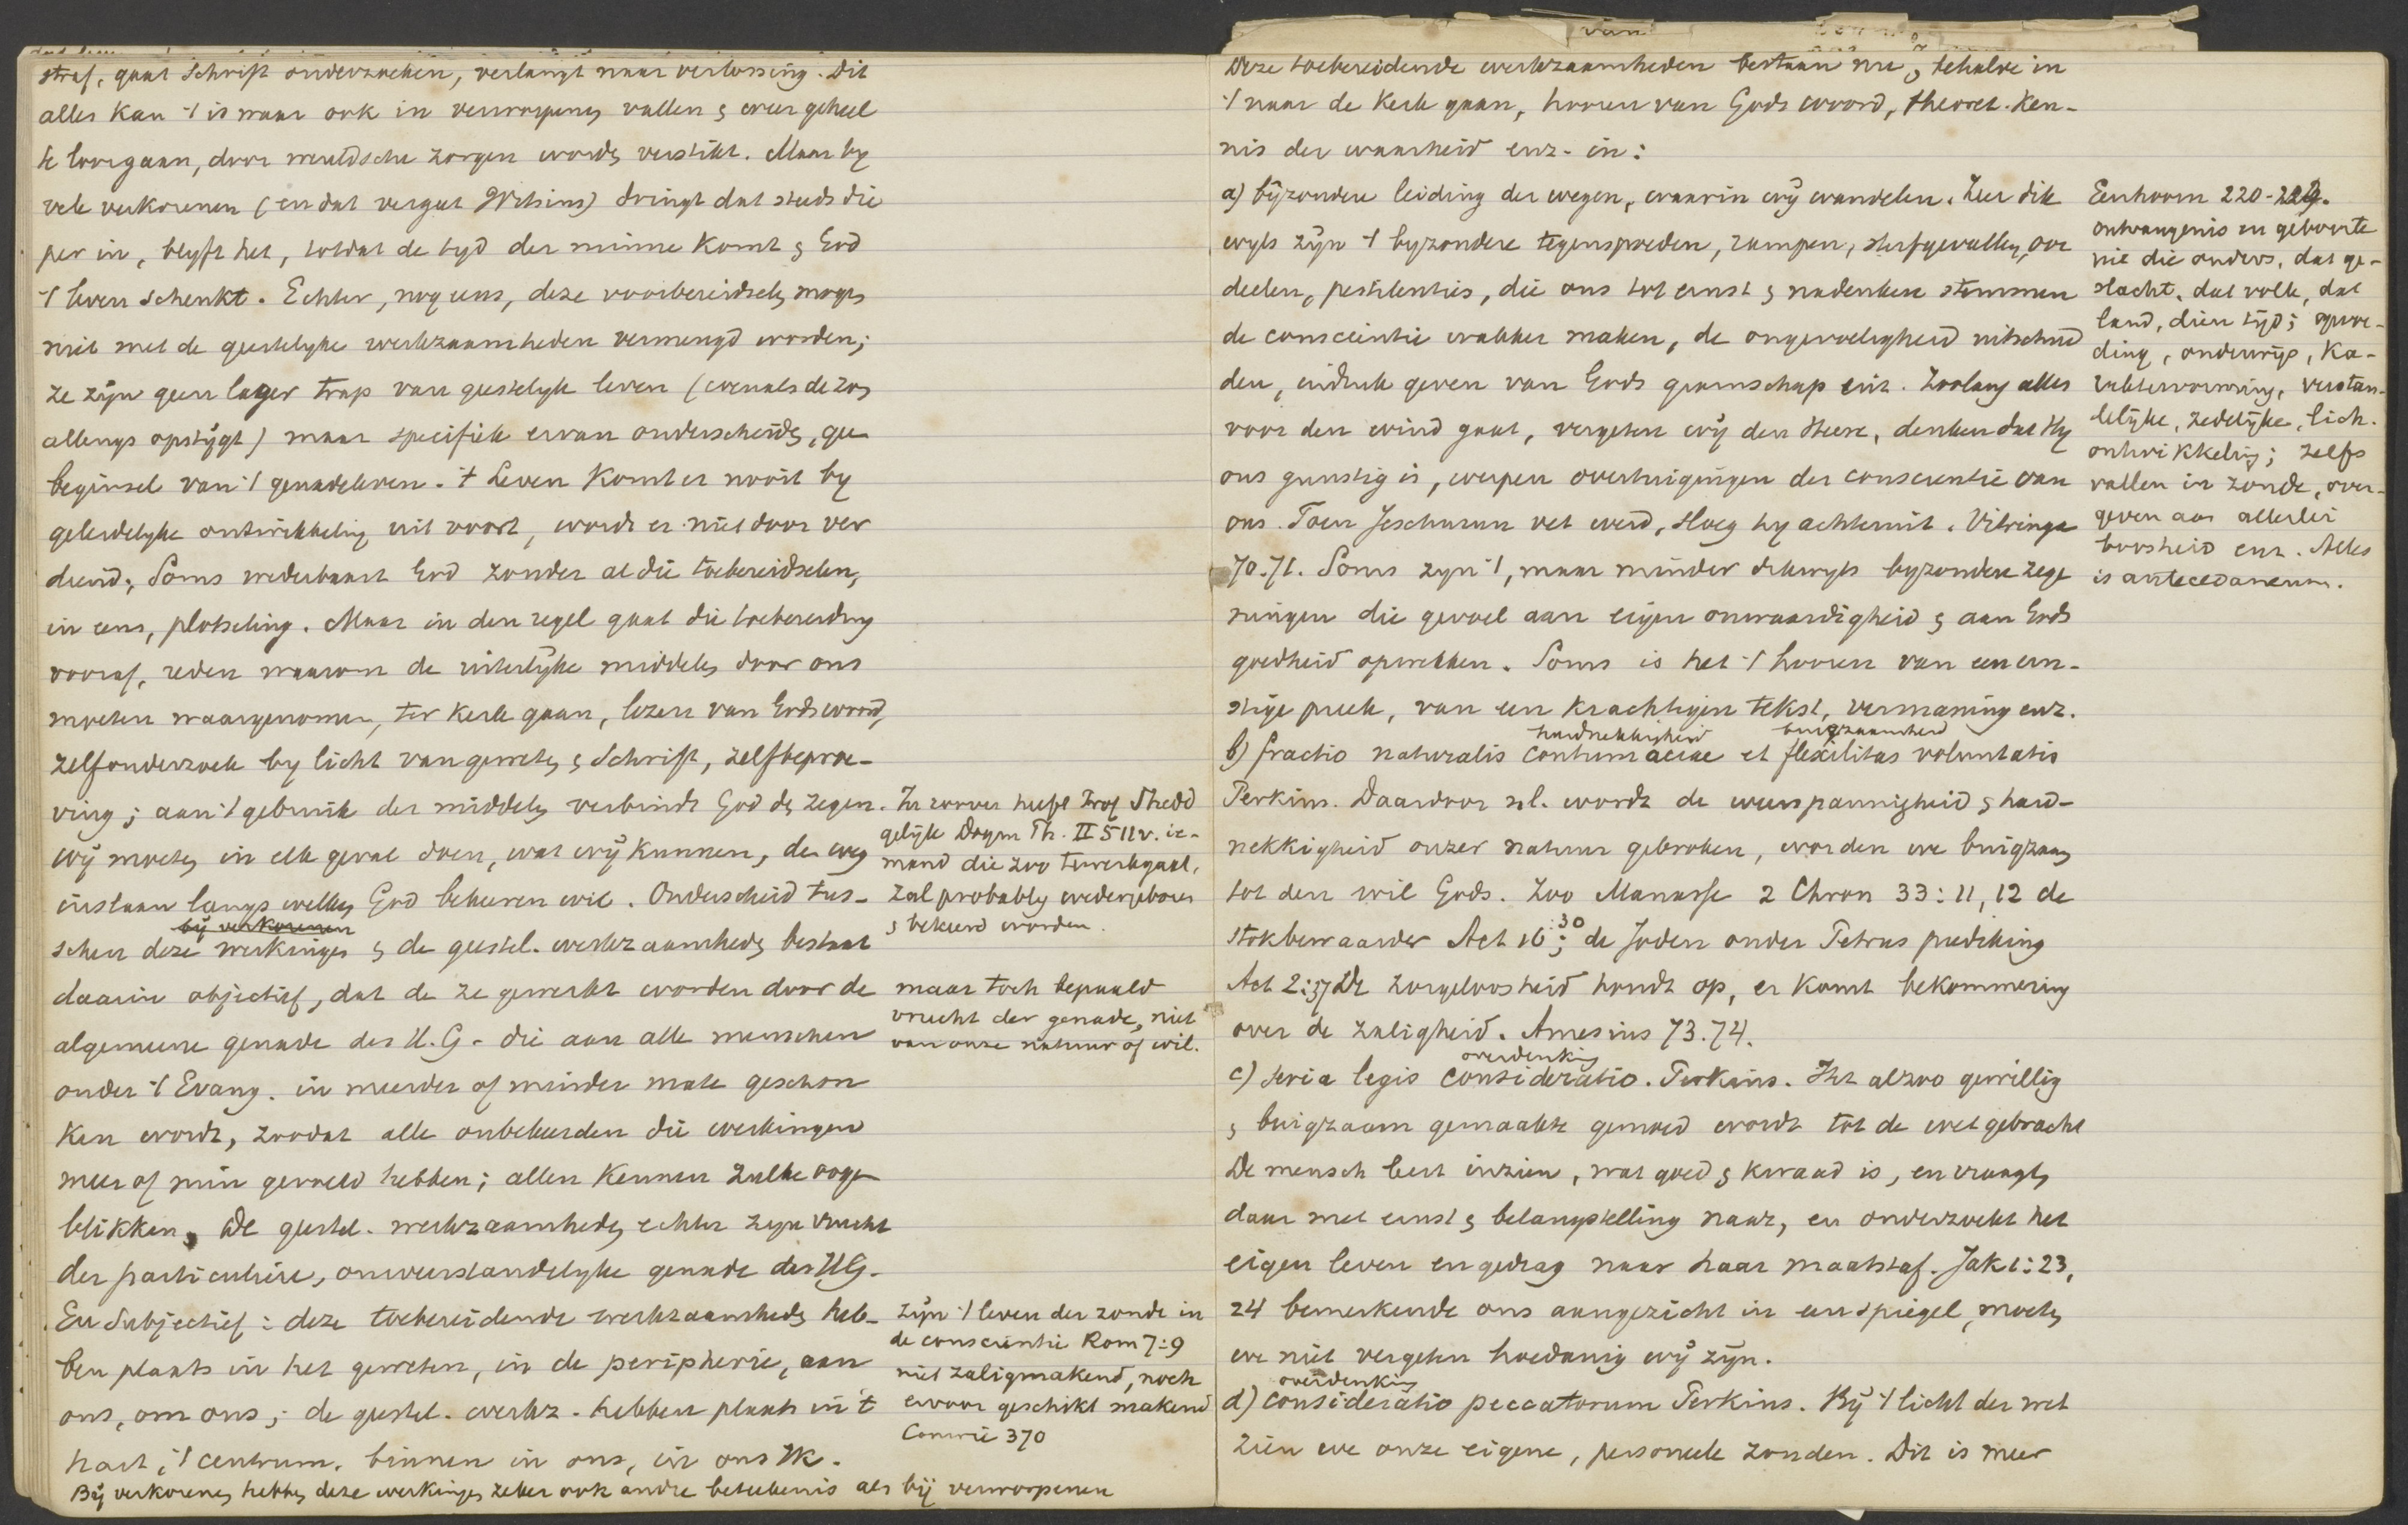 straf, gaat Schrift onderzoeken, verlangt naar verlossing. Dit
alles kan 't is waar ook in verworpenen vallen & weer geheel
te loorgaan, door wereldsche zorgen worden verstikt. Maar by
vele verkorenen (en dat vergeet Witsius) dringt dat steeds die
per in, blyft het, totdat de tyd der minne komt & God
't leven schenkt. Echter, nog eens, deze voorbereidselen mogen
niet met de geestelyke werkzaamheden vermengd worden;
ze zijn geen lager trap van geestelyk leven (evenals de zon
allengs opstijgt) maar specifiek ervan onderscheiden, geen
beginsel van 't genadeleven. 't Leven komt er nooit by
geleidelyke ontwikkeling uit voort, wordt er niet door ver
diend; Soms wederbaart God zonder al die toebereidselen,
in eens, plotseling. Maar in den regel gaat die toebereiding
vooraf, reden waarom de uiterlijke middelen door ons
moeten waargenomen, ter kerk gaan, lezen van Gods woord,
zelfonderzoek by licht van geweten & Schrift, zelfbeproe-
ving; aan 't gebruik der middelen verbindt God den zegen.
wij moeten in elk geval doen, wat wij kunnen, den weg
inslaan langs welken God bekeeren wil. Onderscheid tus-
bij verkorenen
schen deze werkingen & de geestel. werkzaamheden bestaat
daarin objectief, dat de ze gewerkt worden door de
algemeene genade des H.G. die aan alle menschen
onder 't Evang. in meerder of minder mate geschon
ken wordt, zoodat alle onbekeerden die werkingen
meer of min gevoeld hebben; allen kennen zulke oogen
blikken, de geestel. werkzaamheden echter zyn vrucht
der particuliere, onweerstandelyke genade des HG.
En Subjectief: deze toebereidende werkzaamheden heb-
ben plaats in het geweten, in de peripherie, aan
ons, om ons; de geestel. werkz. hebben plaats in 't
hart, 't centrum, binnen in ons, in ons Ik.
Bij verkorenen hebben deze werkingen zeker ook andre beteekenis als bij verworpenen
In zoover heeft Prof Shedd
gelijk Dogm Th. II 511v. ie-
mand die zoo tewerkgaat,
zal probably wedergeboren
& bekeerd worden.
maar toch bepaald
vrucht der genade, niet
van onze natuur of wil.
Zijn 't leven der zonde in
de conscientie Rom 7:9
niet zaligmakend, noch
ervoor geschikt makend
Comrie 370
Deze toebereidende werkzaamheden bestaan nu, behalve in
't naar de kerk gaan, hooren van Gods woord, theoret. ken-
nis der waarheid enz. in:
a) bijzondere leiding der wegen, waarin wij wandelen. Zeer dik
wyls zijn 't byzondere tegenspoeden, rampen, sterfgevallen, oor
deelen, pestilenties, die ons tot ernst & nadenken stemmen
de conscientie wakker maken, de ongevoeligheid uitschud
den, indruk geven van Gods gramschap enz. Zoolang alles
voor den wind gaat, vergeten wij den Heere, denken dat Hy
ons gunstig is, werpen overtuigingen der conscientie van
ons. Toen Jeschurun vet werd, sloeg hy achteruit. Vitringa
70.71. Soms zyn 't, maar minder dikwyls byzondere zege
ningen die gevoel aan eigen onwaardigheid & aan Gods
goedheid opwekken. Soms is het 't hooren van een ern-
stige preek, van een krachtigen tekst, vermaning enz.
hardnekkigheid buigzaamheid
b) fractio naturalis contumaciae et flexilitas voluntatis
Perkins. Daardoor nl. wordt de weerspannigheid & hard-
nekkigheid onzer natuur gebroken, worden we buigzaam
tot den wil Gods. Zoo Manasse 2 Chron 33:11, 12 de
stokbewaarder Act 16:30; de Joden onder Petrus prediking
Act 2:37 De zorgeloosheid houdt op, er komt bekommering
over de zaligheid. Amesius 73.74.
overdenking
c) seria legis consideratio. Perkins. Het alzoo gewillig
& buigzaam gemaakte gemoed wordt tot de wet gebracht
De mensch leert inzien, wat goed & kwaad is, en vraagt
daar met ernst & belangstelling naar, en onderzoekt het
eigen leven en gedrag naar haar maatstaf. Jak 1:23,
24 bemerkende ons aangezicht in een spiegel, moeten
we niet vergeten hoedanig wij zijn.
overdenking
d) consideratio peccatorum Perkins. Bij 't licht der wet
zien we onze eigene, personeele zonden. Dit is meer
Eenhoorn 220-229.
ontvangenis en geboorte
uit die ouders, dat ge-
slacht, dat volk, dat
land, dien tijd; opvoe-
ding, onderwijs, ka-
raktervorming, verstan-
delijke, zedelijke, lich.
ontwikkeling; zelfs
vallen in zonde, over-
geven aan allerlei
boosheid enz. Alles
is antecedaneum.